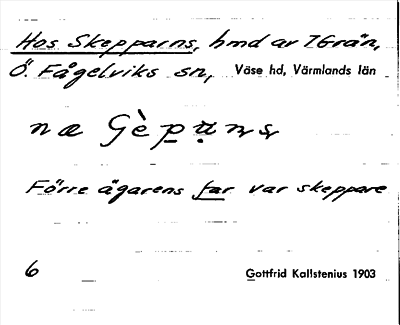 Hos Skepparns, hmd av IGrän,
Ö. Fågelviks sn, Väse hd, Värmlands län
næ
Förre ägarens far var skeppare
6 Gottfrid Kallstenius 1903